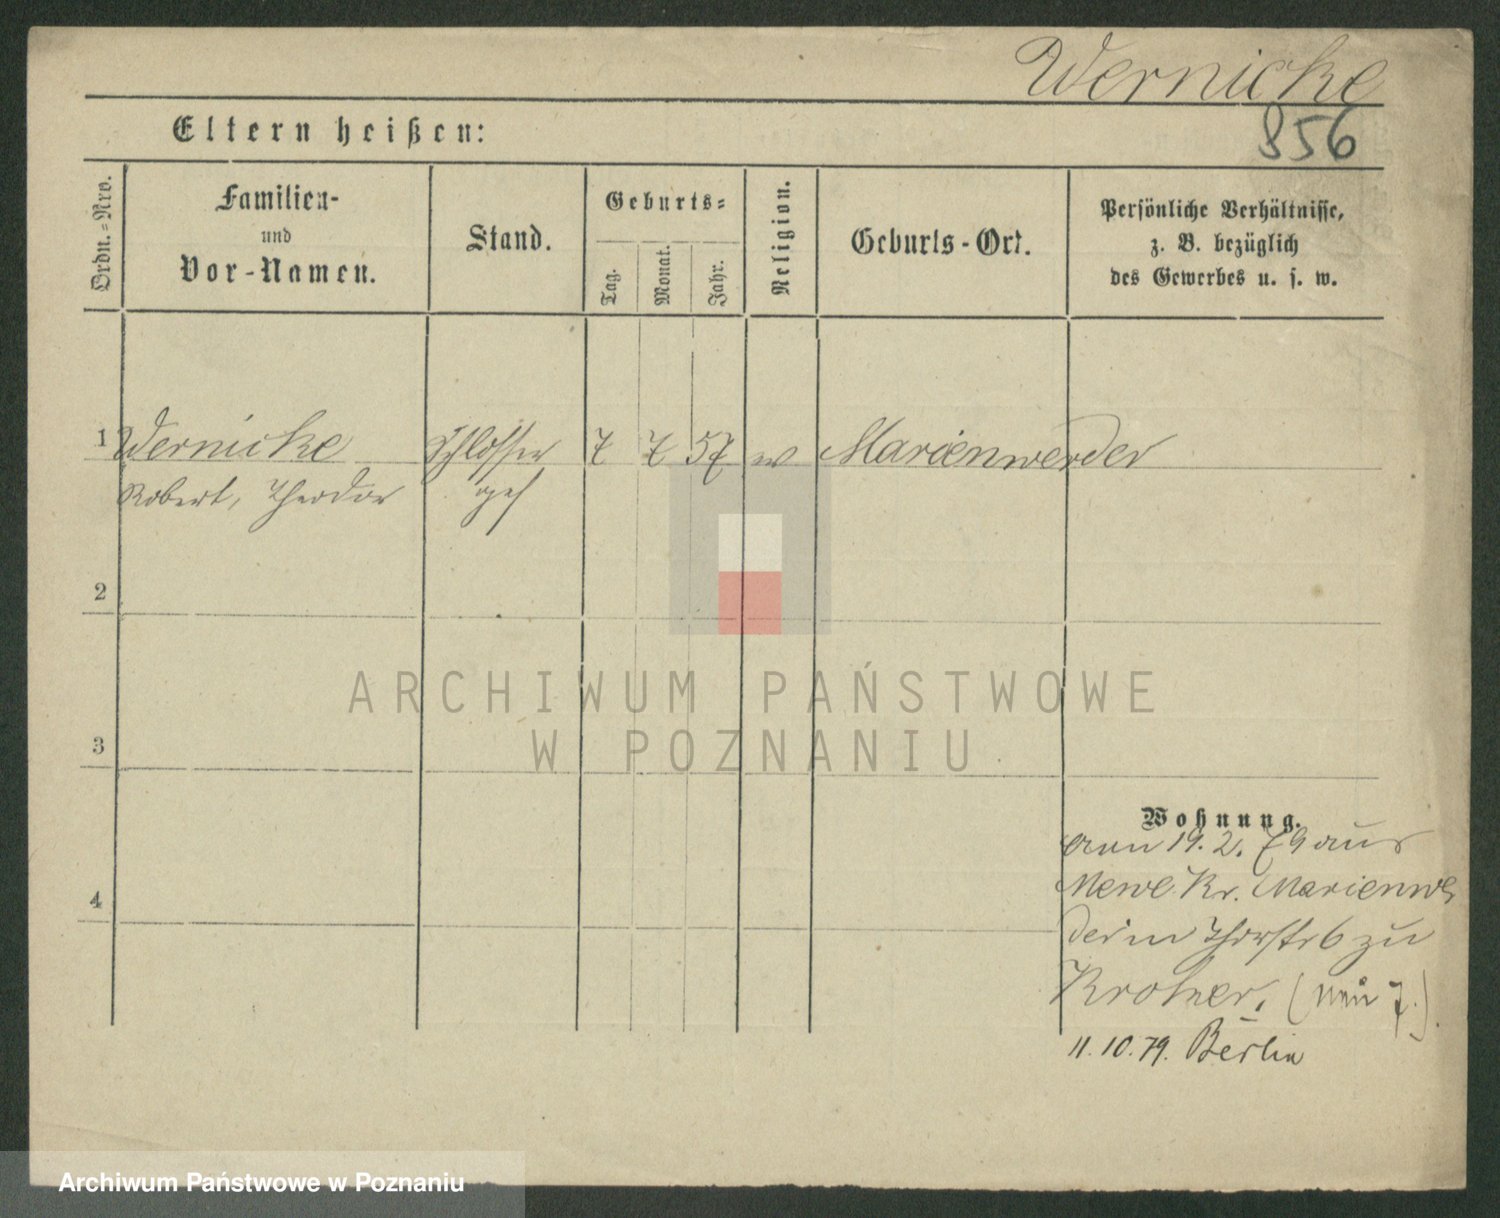 Wernicke
856
Eltern heißen:
Ordn.=Nro.
Familien-
und
Vor-Namen.
Stand.
Geburts=
Tag.
Monat.
Jahr.
Religion.
Geburts-Ort.
Persönliche Verhältnisse,
z. B. bezüglich
des Gewerbes u. s. w.
1 Wernicke Schlosser 7 7 57 ev Marienwerder
Robert, Theodor ges
2
3
4
Wohnung.
19. 2. 79 aus
Mewe Kr. Marienwe
der in Thorstr 6 zu
11. 10. 79. Berlin
ARCHIWUM PAŃSTWOWE
W POZNANIU
Archiwum Państwowe w Poznaniu